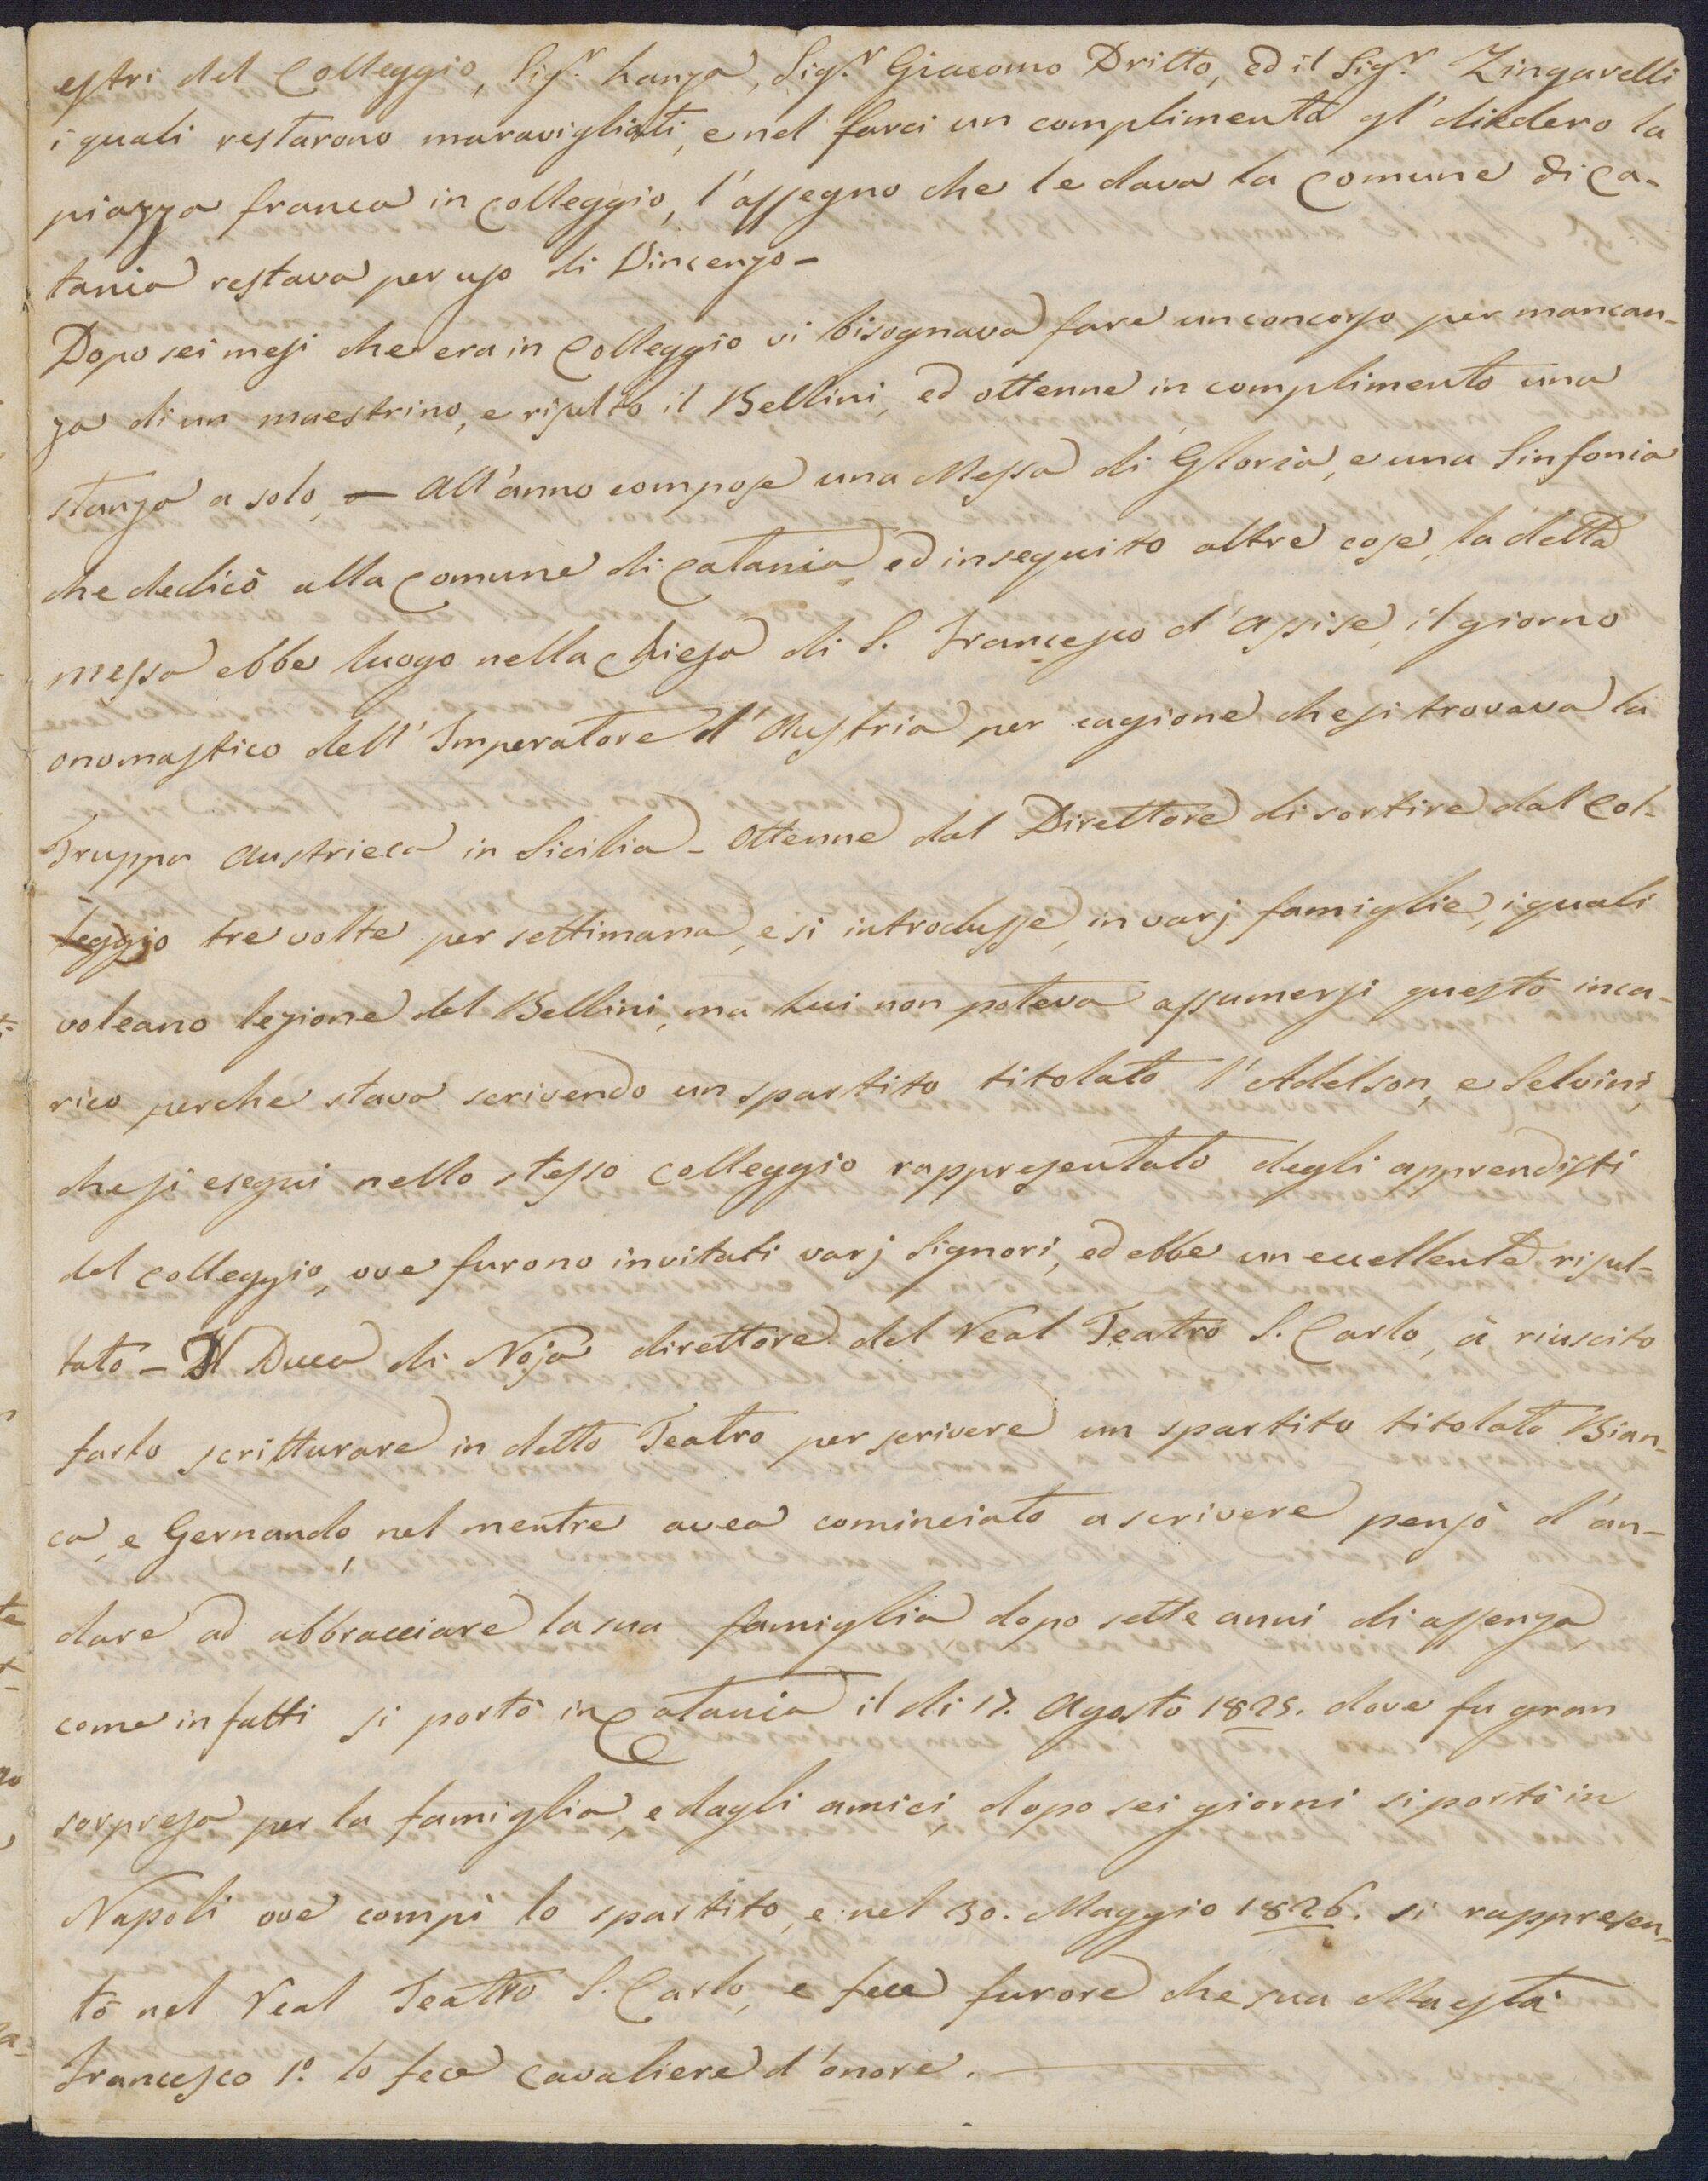 estri del Colleggio, Sig.r Lanza, Sig.r Giacomo Dritto, ed il Sig.r Zingarelli
i quali restarono maravigliati, e nel farci un complimento gl' diedero la
piazza franca in Colleggio, l'assegno che le dava la Comune di Ca-
tania restava per uso di Vincenzo -
Dopo sei mesi che era in Colleggio vi bisognava fare un concorso per mancan-
za di un maestrino, e risultò il Bellini, ed ottenne in complimento una
stanza a solo, - All'anno compose una Messa di Gloria, e una Sinfonia
che dedicò alla Comune di Catania, ed in seguito altre cose, la detta
messa ebbe luogo nella Chiesa di S. Francesco d'Assise, il giorno
onomastico dell'Imperatore d'Austria per cagione che si trovava la
Truppa Austrieca in Sicilia - Ottenne dal Direttore di sortire dal Col-
leggio tre volte per settimana, e si introdusse, in varj famiglie, i quali
voleano lezione del Bellini, ma Lui non poteva assumersi questo inca-
rico perche stava scrivendo un spartito titolato l'Adelson, e Selvini,
che si esegui nello stesso Colleggio rappresentato degli apprendisti
del Colleggio, ove furono invitati varj Signori, ed ebbe un eccellente risul-
tato - Il Duca di Noja direttore del Real Teatro S. Carlo, à riuscito
farlo scritturare in detto Teatro per scrivere un spartito titolato Bian-
ca, e Gernando, nel mentre avea cominciato a scrivere pensò d'an-
dare ad abbracciare la sua famiglia, dopo sette anni di assenza
come in fatti si portò in Catania il di 17. Agosto 1825. dove fu gran
sorpresa per la famiglia, e dagli amici, dopo sei giorni si portò in
Napoli ove compì lo spartito, e nel 30. Maggio 1826. si rappresen-
tò nel Real Teatro S. Carlo, e fece furore che sua Maestà
Francesco 1.o lo fece Cavaliere d'onore.